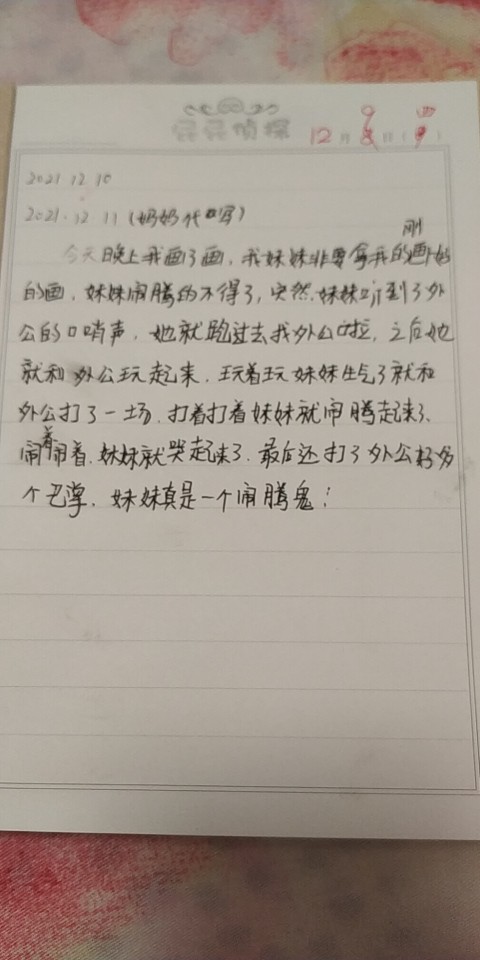 屁屁侦探
12月9日(四)
2021.12.10
2021.12.11(妈妈代写)
今天晚上我画了画,我妹妹非要拿我刚画好
的画,妹妹闹腾的不得了,突然,妹妹听到了外
公的口哨声,她就跑过去找外公啦,之后她
就和外公玩起来,玩着玩妹妹生气了就和
外公打了一场,打着打着妹妹就闹腾起来了,
闹着闹着,妹妹就哭起来了,最后还打了外公好多
个巴掌,妹妹真是一个闹腾鬼!